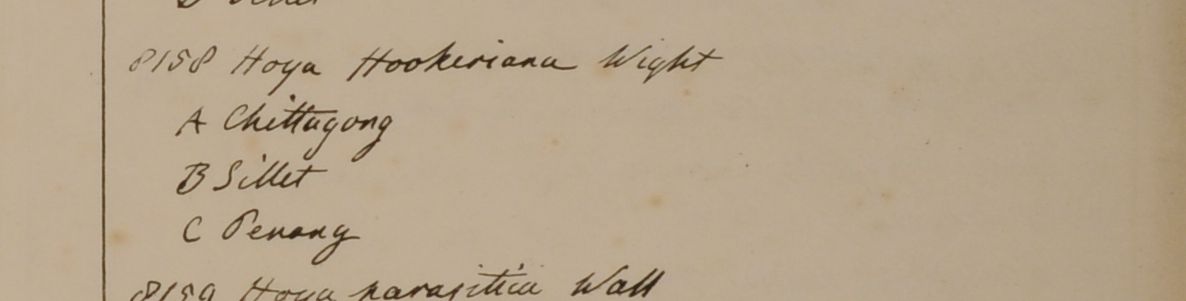 8158 Hoya Hookeriana Wight
A Chittagong
B Sillet
C Penang
8159 Hoya parasitica Wall